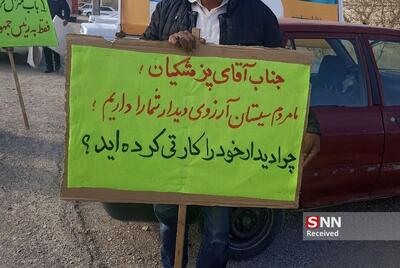 جناب آقای پزشکیان ؛
ما مردم سیستان آرزوی دیدار شما را داریم ؛
چرا دیدار خود را کارتی کرده اید ؟
فقط به رئیس جمهور
SNN
Received